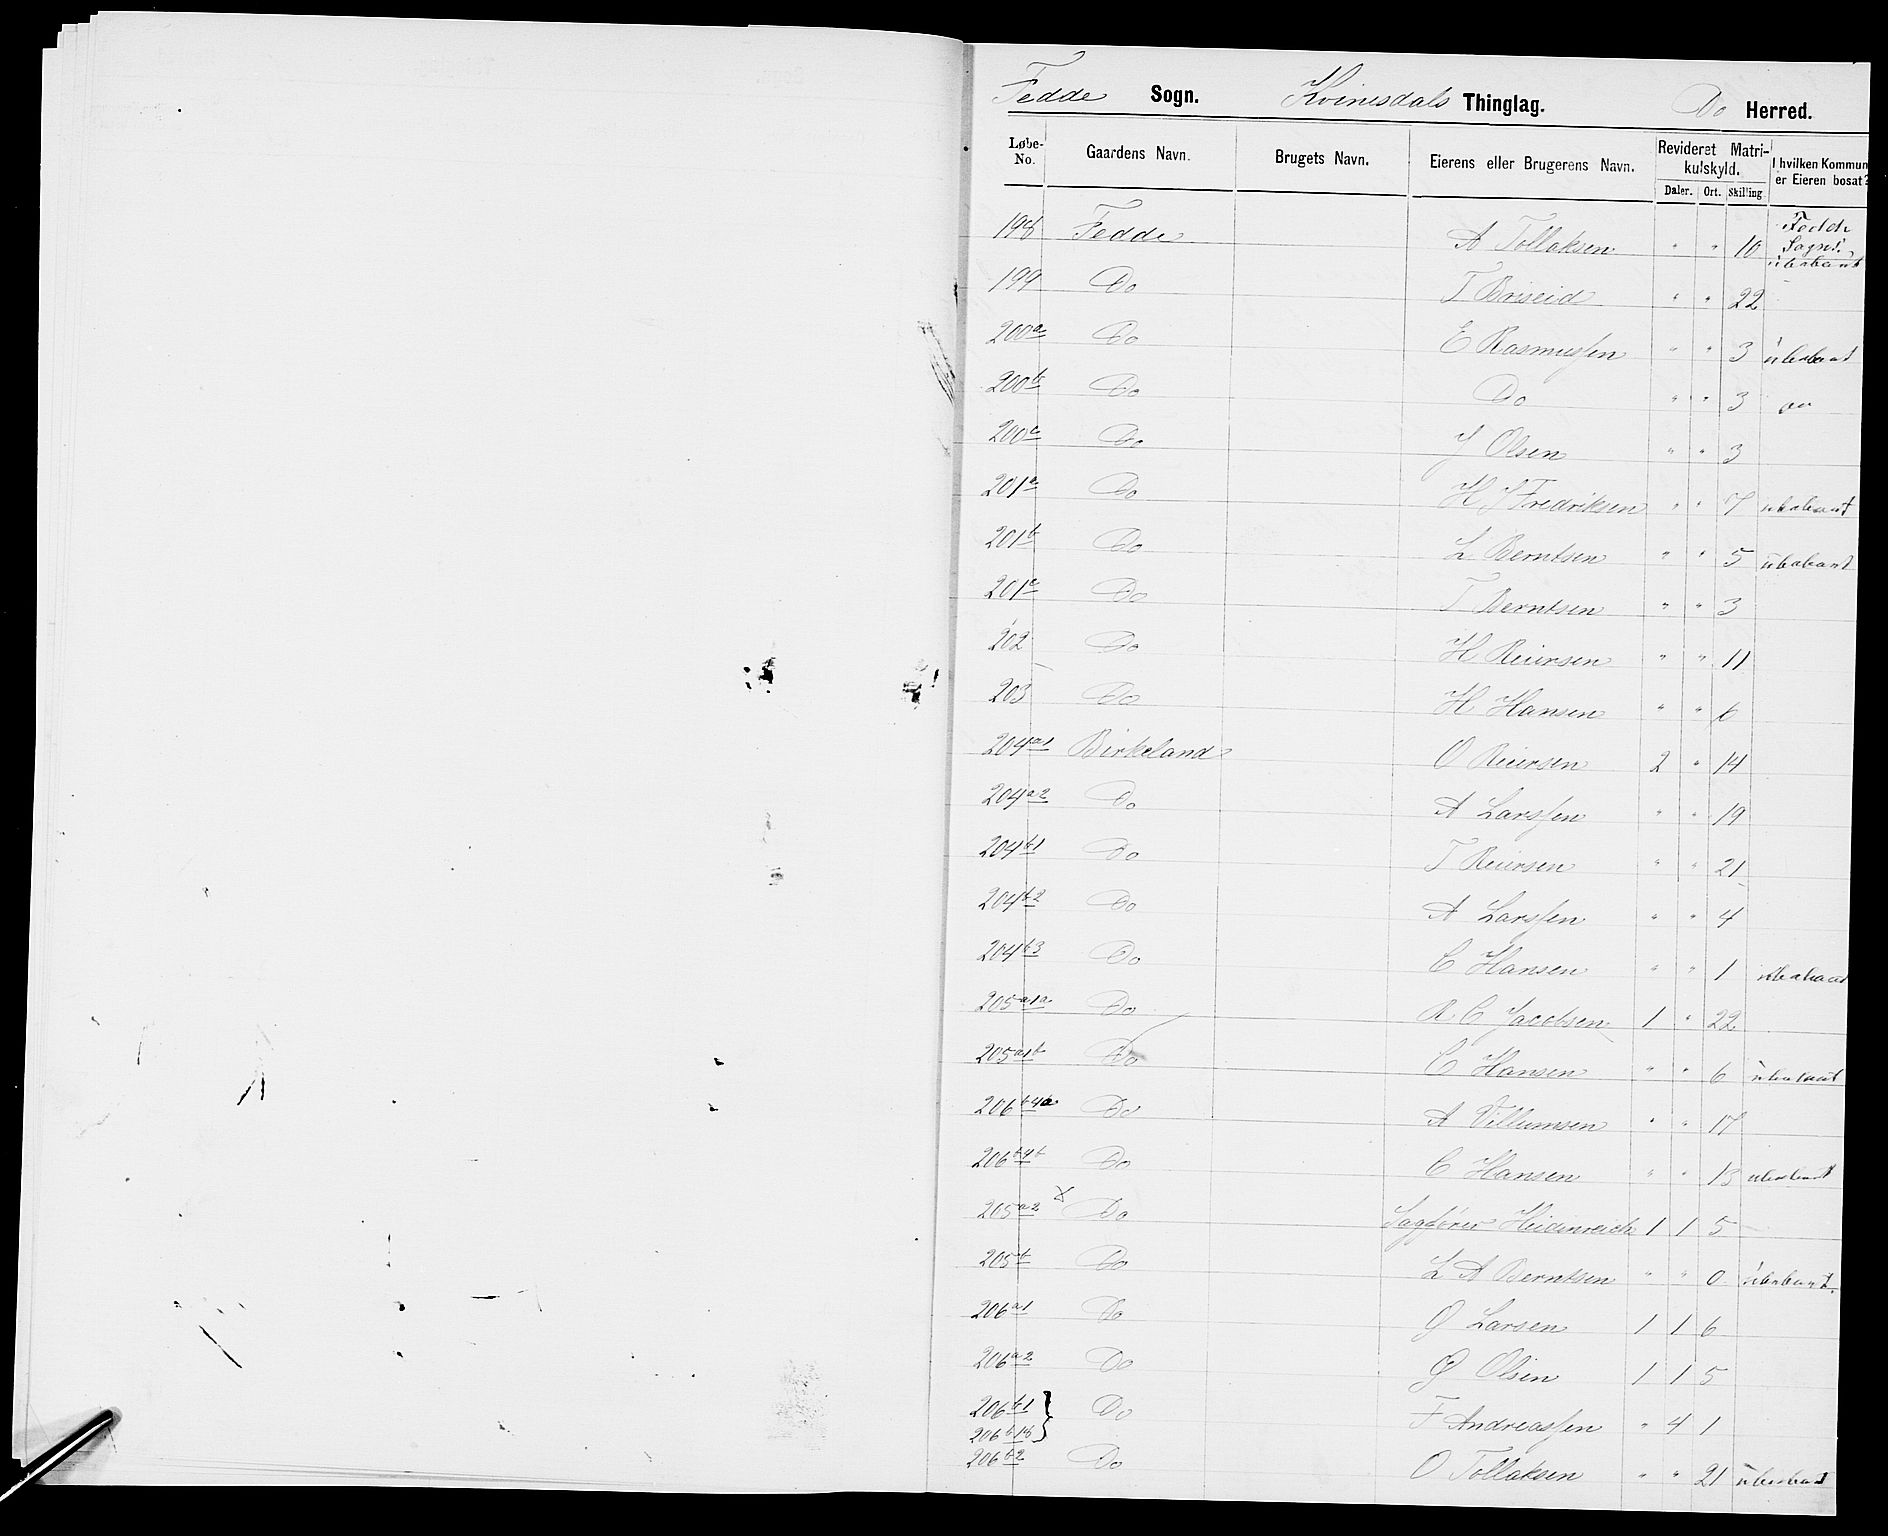 Fedde Sogn. Kvinesdals Thinglag. Do Herred.
Løbe-No. Gaardens Navn. Brugets Navn. Eierens eller Brugerens Navn. Revideret Matrikulskyld. I hvilken Kommun er Eieren bosat?
Daler. Ort. Skilling
198 Fedde A Tollaksen " " 10 Fedde Sogns! ubebant
199 Do T Briseid " " 22
200a Do E Rasmussen " " 3 ubebant
200b Do Do " " 3 do
200c Do J Olsen " " 3
201a Do H J Fredriksen " " 7 ubebant
201b Do L Berntsen " " 5 ubebant
201c Do T Berntsen " " 3
202 Do H Reiersen " " 11
203 Do H Hansen " " 6
204a1 Birkeland O Reiersen 2 " 14
204a2 Do A Larssen " " 19
204b1 Do T Reiersen " " 21
204b2 Do A Larssen " " 4
204b3 Do C Hansen " " 1 ubebant
205a1a Do R C Jacobsen 1 " 22
205a1b Do C Hansen " " 6 ubebant
206b4a Do A Villumsen " " 17
206b4b Do C Hansen " " 13 ubebant
205a2 x Do Sagfører Heidenreich 1 1 5
205b Do L A Berntsen " " 0 ubebant.
206a1 Do Ø Larsen 1 1 6
206a2 Do G Olsen 1 1 5
206b1 } Do F Andreassen " 4 1
206b18
206b2 Do O Tollaksen " " 21 ubebant